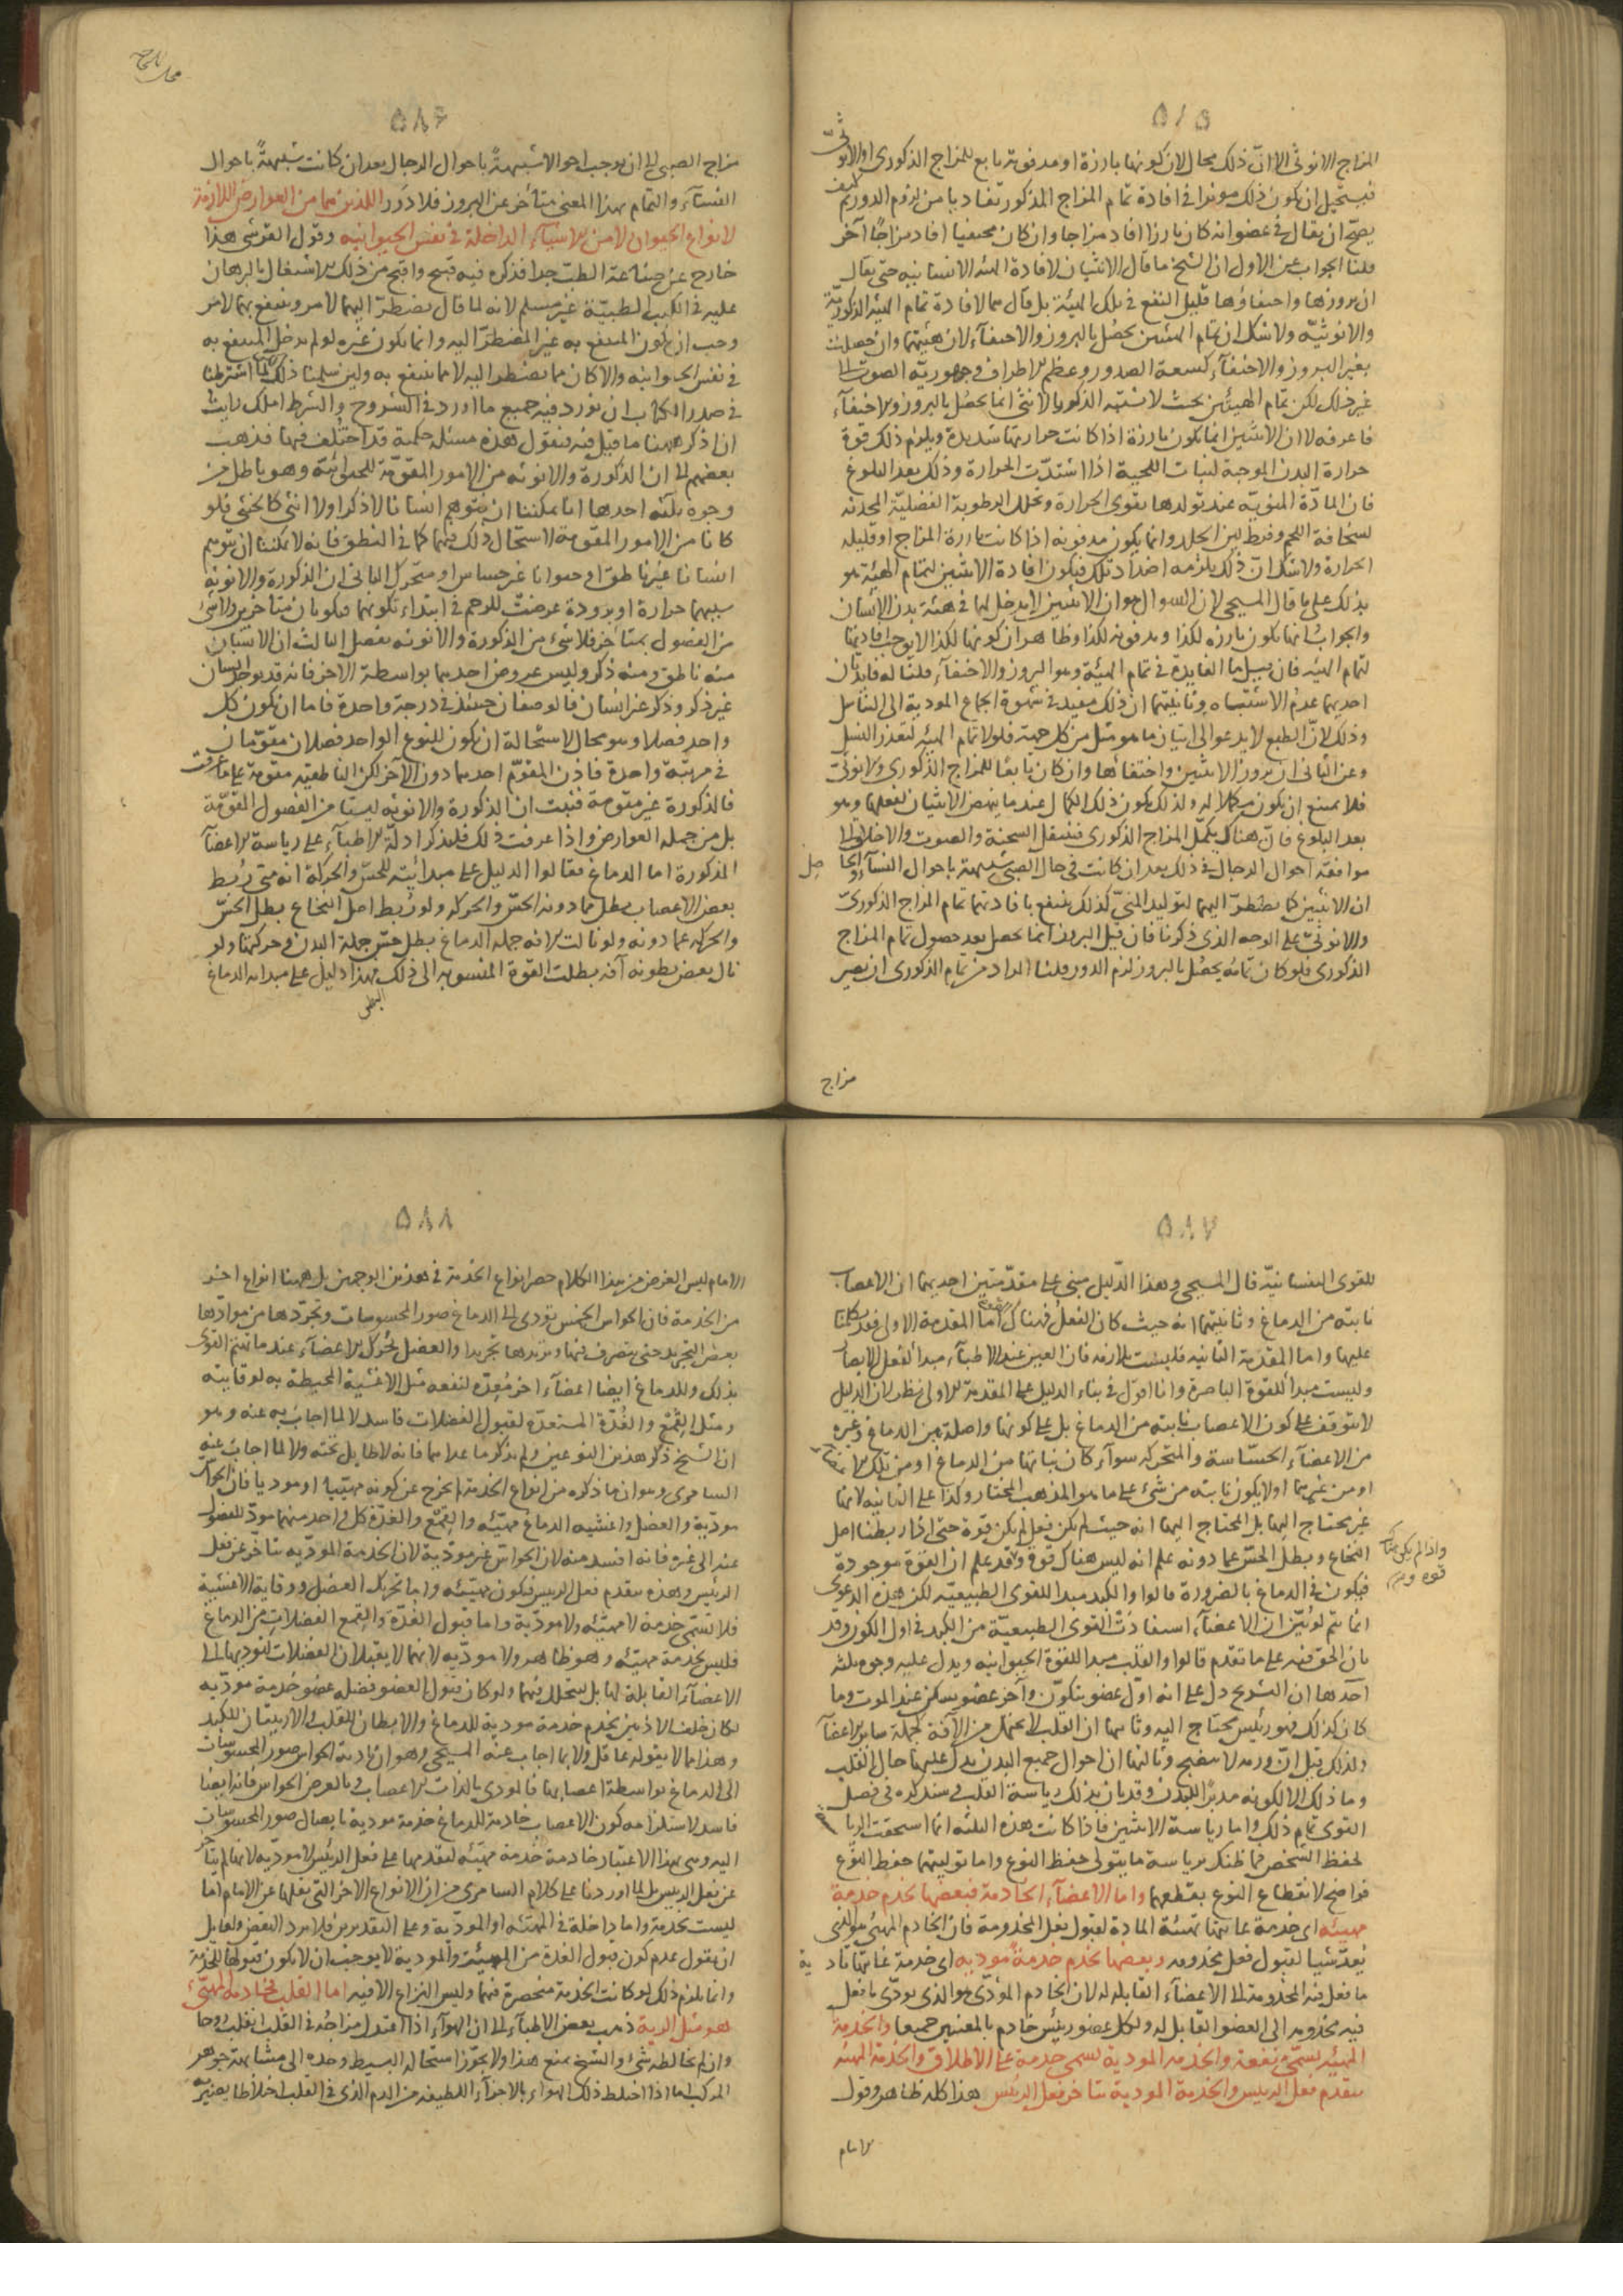 ٥٨٥
المزاج الانوثى الا ان ذلك محال لان كونها بارزة او مدفونة تابع للمزاج الذكورى او الانوثى
فيستحيل ان يكون ذلك موثرا فى افادة تمام المزاج المذكور تفاديا من لزوم الدور ثم كيف
يصح ان يقال فى عضو انه كان بارزا افاد مزاجا وان كان مخفيا افاد مزاجا آخر
قلنا الجواب عن الاول ان الشيخ ما قال الانثيان لافادة الهيئة الانسانية حتى يقال
ان بروزها واختفاؤها قليل النفع فى تلك الهيئة بل قال هما لافادة تمام الهيئة الذكورية
والانوثيه ولا شك ان تمام الهيئتين يحصل بالبروز والاختفاء لان هيئتهما وان حصلت
بغير البروز والاختفاء كسعة الصدور وعظم الاطراف وجهورية الصوت الى
غير ذلك لكن تمام الهيئتين بحيث لا تشتبه الذكور بالانثى انما يحصل بالبروز والاختفاء
فاعرفه لا ان الانثيين انما يكون بارزة اذا كانت حرارتها شديدة ويلزم ذلك قوة
حرارة البدن الموجبة لنبات اللحية اذا اشتدت الحرارة وذلك بعد البلوغ
فان المادة المنوية عند تولدها يقوى الحرارة وتحلل الرطوبة الفضلية المحدثه
لسخافة اللحم وفرط لين الجلد وانما يكون مدفونه اذا كانت باردة المزاج او قليله
الحرارة ولا شك ان ذلك يلزمه اضداد تلك فيكون افادة الانثيين لتمام الهيئة هو
بذلك على ما قال المسيحى لان السوال هو ان الانثيين لا يدخل لها فى هيئة بدن الانسان
والجواب انها يكون بارزه لكذا ومدفونه لكذا وظاهر ان كونها لكذا لا يوجب افادتها
لتمام الهيئه فان قيل ما الفايدة فى تمام الهيئة وهو البروز والاختفاء قلنا له فايدتان
احديهما عدم الاشتباه وثانيتهما ان ذلك مفيد فى شهوة الجماع المودية الى التناسل
وذلك لان الطبع لا يدعو الى اتيان ما هو مثل من كل جهة فلولا تمام الهيئه لتعذر النسل
وعن الثانى ان بروز الانثيين واختفائها وان كان تابعا للمزاج الذكورى والانوثى
فلا يمنع ان يكون مكملا له ولذلك يكون ذلك الكمال عند ما ينهض الانثيان لفعلها وهو
بعد البلوغ فانّ هناك يكمّل المزاج الذكورى فتنتقل السحنة والصوت والاخلاق الى
موافقة احوال الرجال فى ذلك بعد ان كانت فى حال الصبى شبيهة باحوال النساء والحا صل
ان الانثيين كما يضطر اليهما لتوليد المنىّ كذلك ينتفع بافادتها تمام المزاج الذكورىّ
والانوثىّ على الوجه الذى ذكرنا فان قيل البروز انما يحصل بعد حصول تمام المزاج
الذكورى فلو كان تمامه يحصل بالبروز لزم الدور قلنا المراد من تمام الذكورى ان يصير
مزاج
٥٨٦
مزاج الصبى الى ان يوجب احوالا شبيهةً باحوال الرجال بعد ان كانت شبيهةً باحوال
النساء والتمام بهذا المعنى يتأخر عن البروز فلا دَور اللذين هما من العوارض اللازمة
لانواع الحيوان لا من الاشياء الداخلة فى نفس الحيوانيه وقول القرشى هذا
خارج عن صناعة الطب جدا فذكره فيه قبيح واقبح من ذلك الاشتغال بالبرهان
عليه فى الكتب الطبية غير مسلم لانه لما قال يضطر اليهما لامر وينتفع بهما لامر
وجب ان يكون المنتفع به غير المضطر اليه وانما يكون غيره لو لم يدخل المنتفع به
فى نفس الحيوانيه والا كان مما يضطر اليه لا مما ينتفع به ولين سلمنا ذلك لكنّا اشترطنا
فى صدر الكتاب ان نورد فيه جميع ما اورد فى الشروح والشرط املك رايت
ان اذكر ههنا ما قيل فيه فنقول هذه مسئلة حكمية قد اختلف فيها فذهب
بعضهم الى ان الذكورة والانوثه من الامور المقوّمة للحيوانية وهو باطل من
وجوه ثلثه احدها انا يمكننا ان نتوهم انسانا لا ذكرا ولا انثى كالخنثى فلو
كانا من الامور المقومة لاستحال ذلك فيهما كما فى النطق فانه لا يمكننا ان نتوهم
انسانا غير ناطق او حيوانا غير حساس او متحرك الثانى ان الذكورة والانوثه
سببهما حرارة او برودة عرضت للرحم فى ابتداء تكونهما فيكونان متأخرين ولا شئ
من الفصول بمتأخر فلا شئ من الذكورة والانوثه بفصل الثالث ان الانسان
منه ناطق ومنه ذكر وليس عروض احدهما بواسطة الاخر فانه قد يوجد انسان
غير ذكر وذكر غير انسان فالوصفان حينئذ فى درجة واحدة فاما ان يكون كل
واحد فصلا وهو محال لاستحالة ان يكون للنوع الواحد فصلان مقوّمان
فى مرتبة واحدة فاذن المقوّم احدهما دون الآخر لكن الناطقيه مقومة على ما عرفت
فالذكورة غير مقومة فثبت ان الذكورة والانوثه ليستا من الفصول المقوّمة
بل من جملة العوارض واذا عرفت ذلك فلنذكر ادلّة الاطباء على رياسة الاعضاء
المذكورة اما الدماغ فقالوا الدليل على مبدائيته للحس والحركة انه متى رُبط
بعض الاعصاب بطل مما دونه الحسّ والحركه ولو ربط اصل النخاع بطل الحسّ
والحركه عما دونه ولو نالت الافه جملة الدماغ بطل حسّ جملة البدن وحركتها ولو
نال بعض بطونه آفه بطلت القوة المنسوبه الى ذلك البطن فهذا دليل على مبدائية الدماغ
٥٨٧
للقوى النفسانيّه قال المسيحى وهذا الدّليل مبنى على مقدّمتين احديهما ان الاعصاب
نابته من الدماغ وثانيتهما انه حيث كان الفعل فهناك القوة اما المقدمة الاولى فقد تكلمنا
عليها واما المقدمة الثانيه فليست بلازمه فان العين عند الاطباء مبدأ لفعل الابصار
وليست مبدأ للقوة الباصرة وانا اقول فى بناء الدليل على المقدمة الاولى نظر لان الدليل
لا يتوقف على كون الاعصاب نابته من الدماغ بل على كونها واصلة بين الدماغ وغيره
من الاعضاء الحسّاسة والمتحركه سواء كان نباتها من الدماغ او من تلك الاعضاء
او من غيرهما او لا يكون نابته من شئ على ما هو المذهب المختار وكذا على الثانيه لانها
غير محتاج اليها بل المحتاج اليها انه حيث لم يكن فعل لم يكن قوة حتى اذا ربطنا اصل
النخاع وبطل الحسّ عما دونه علم انه ليس هناك قوة وقد علم ان القوة موجودة
واذا لم يكن هناك
قوه
فيكون فى الدماغ بالضرورة قالوا والكبد مبدا للقوى الطبيعيّه لكن هذه الدعوى
انما تتم لو تُبيّن ان الاعضاء استفادَت القوى الطبيعيّة من الكبد فى اول الكون وقد
بان الحق فيه على ما تقدم قالوا والقلب مبدا للقوة الحيوانيه ويدل عليه وجوه ثلثه
احدها ان التشريح دل على انه اوّل عضو يتكوّن وآخر عضو يسكن عند الموت وما
كان كذلك فهو رئيس محتاج اليه وثانيها ان القلب لا يحتمل من الآفة كجملة ساير الاعضاء
ولذلك قيل انّ ورمه لا ينضج وثالثها ان احوال جميع البدن يدل عليها حال القلب
وما ذلك الا لكونه مدبرًا للبدن وقد بان بذلك رياسة القلب وسنذكره فى فصل
القوى تمام ذلك واما رياسة الانثيين فاذا كانت هذه الثلثه انما استحقت الرياسة
لحفظ الشخص فما ظنك برياسة ما يتولى حفظ النوع واما توليتهما حفظ النوع
فواضح لانقطاع النوع بقطعهما واما الاعضاء الخادمة فبعضها تخدم خدمةً
مهيئه اى خدمة غايتها تهيئة المادة لقبول فعل المخدومة فان الخادم المهيئ هو الذى
يُعدّ شيا لقبول فعل مخدومه وبعضها تخدم خدمةً موديه اى خدمة غايتها تادية
ما فعل فيه المخدومة الى الاعضاء القابلة له لان الخادم المؤدّى هو الذى يودّى ما فعل
فيه مخدومه الى العضو القابل له ولكل عضو رئيس خادم بالمعنيين جميعا والخدمة
المهيئه تسمّى منفعة والخدمه المودية تسمى خدمةً على الاطلاق والخدمة المهيئه
يتقدم فعل الرئيس والخدمة المودية يتاخر فعل الرئيس هذا كله ظاهر وقول
الامام
٥٨٨
الامام ليس الغرض من هذا الكلام حصر انواع الخدمة فى هذين الوجهين بل ههنا انواع اخر
من الخدمة فان الحواس الخمس تؤدى الى الدماغ صور المحسوسات وتجرّدها من موادها
بعض التجريد حتى يتصرف فيها ويزيدها تجريدا والعضل تحرك الاعضاء عند ما تهتم القوى
بذلك وللدماغ ايضا اعضاء اخر مُعِدّه لنفعه مثل الاغشية المحيطة به لوقايته
ومثل القِمْع والغُدّة المستعدّة لقبول الفضلات فاسد لا لما اجاب به عنه وهو
ان الشيخ ذكر هذين النوعين ولم يذكر ما عداهما فانه لا طايل تحته ولا لما اجاب عنه
السامرى وهو ان ما ذكره من انواع الخدمة لم يخرج عن كونه مهيّيا او موديا فان الحواس
مودّية والعضل واغشيه الدماغ مهيّئه والقِمْع والغدّة كل واحد منهما مودّ للفضول
عنه الى غيره فانه افسد منه لان الحواس غير مودّية لان الخدمة المودّيه يتأخّر عن فعل
الرئيس وهذه يتقدم فعل الرئيس فيكون مهيّئه واما تحريك العضل ووقاية الاغشية
فلا تسمّى خدمة لا مهيّئه ولا مودّية واما قبول الغُدّة والقِمع الفضلات من الدماغ
فليس بخدمة مهيّئه وهو ظاهر ولا موديه لانهما لا يقبلان الفضلات لتوديها الى
الاعضاء القابلة لها بل ليتحلل فيهما ولو كان قبول العضو فضله عضو خدمةً مودّيه
لكان خلف الاذنين يخدم خدمة مودية للدماغ والابطان للقلب والاربيتان للكبد
وهذا ما لا يقوله عاقل ولا بما اجاب عنه المسيحى وهو ان تادية الحواس صور المحسوسات
الى الدماغ بواسطة اعصابها فالمودى بالذات الاعصاب وبالعرض الحواس فانه ايضا
فاسد لاستلزامه كون الاعصاب خادمة للدماغ خدمة مودية بايصال صور المحسوسات
اليه وهى بهذا الاعتبار خادمة خدمة مهيّئه لتقدمها على فعل الرئيس لا موديه لانها لم يتأخر
عن فعل الرئيس بل لما اوردنا على كلام السامرى من ان الانواع الاخر التى نقلها عن الامام اما
ليست بخدمة واما داخلة فى المهيّئه او المودّية وعلى التقديرين فلا يرد النقض ولقايل
ان يقول عدم كون قبول الغدة من المهيئة والمودية لا يوجب ان لا يكون قبولها للخدمة
وانما يلزم ذلك لو كانت الخدمة منحصرة فيهما وليس النزاع الا فيه اما القلب فخادمه المهيّئ
هو مثل الرية ذهب بعض الاطباء الى ان الهواء اذا اعتدل مزاجه فى القلب انقلب روحا
وان لم يخالطه شئ والشيخ يمنع هذا ولا يجوّز استحالة البسيط وحده الى مشابهة جوهر
المركب اما اذا اختلط ذلك الهواء بالاجزاء اللطيفه من الدم الذى فى القلب اختلاطا يصير به